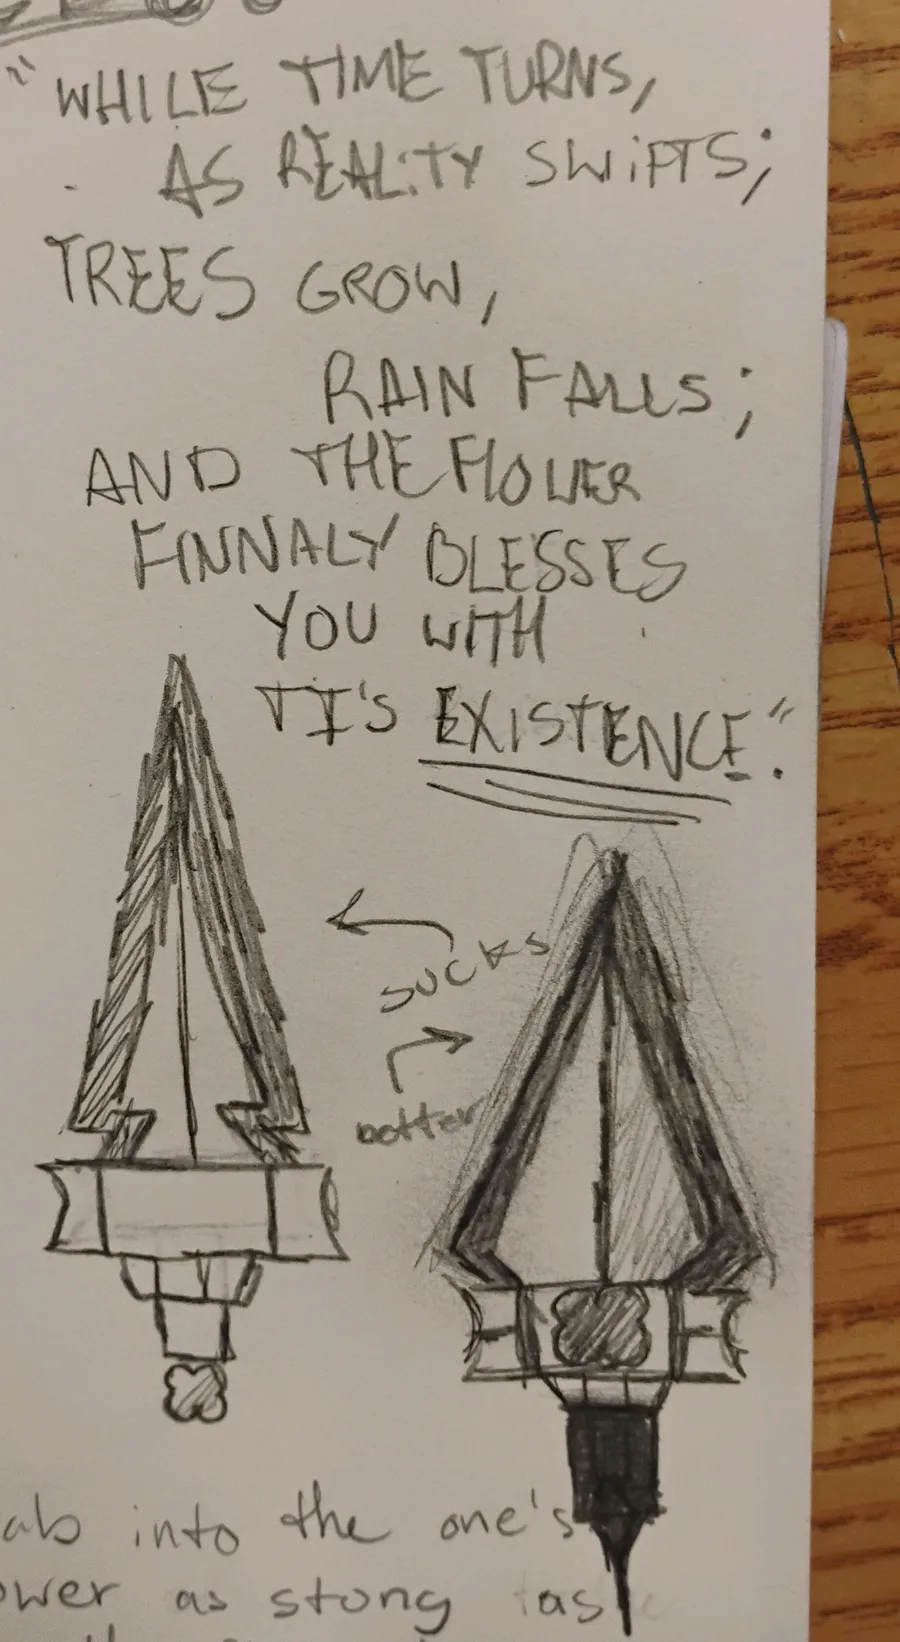 "WHILE TIME TURNS,
AS REALITY SWIFTS;
TREES GROW,
RAIN FALLS;
AND THE FLOWER
FINNALY BLESSES
YOU WITH
TI'S EXISTENCE".
SUCKS
better
into the one's
as stong as